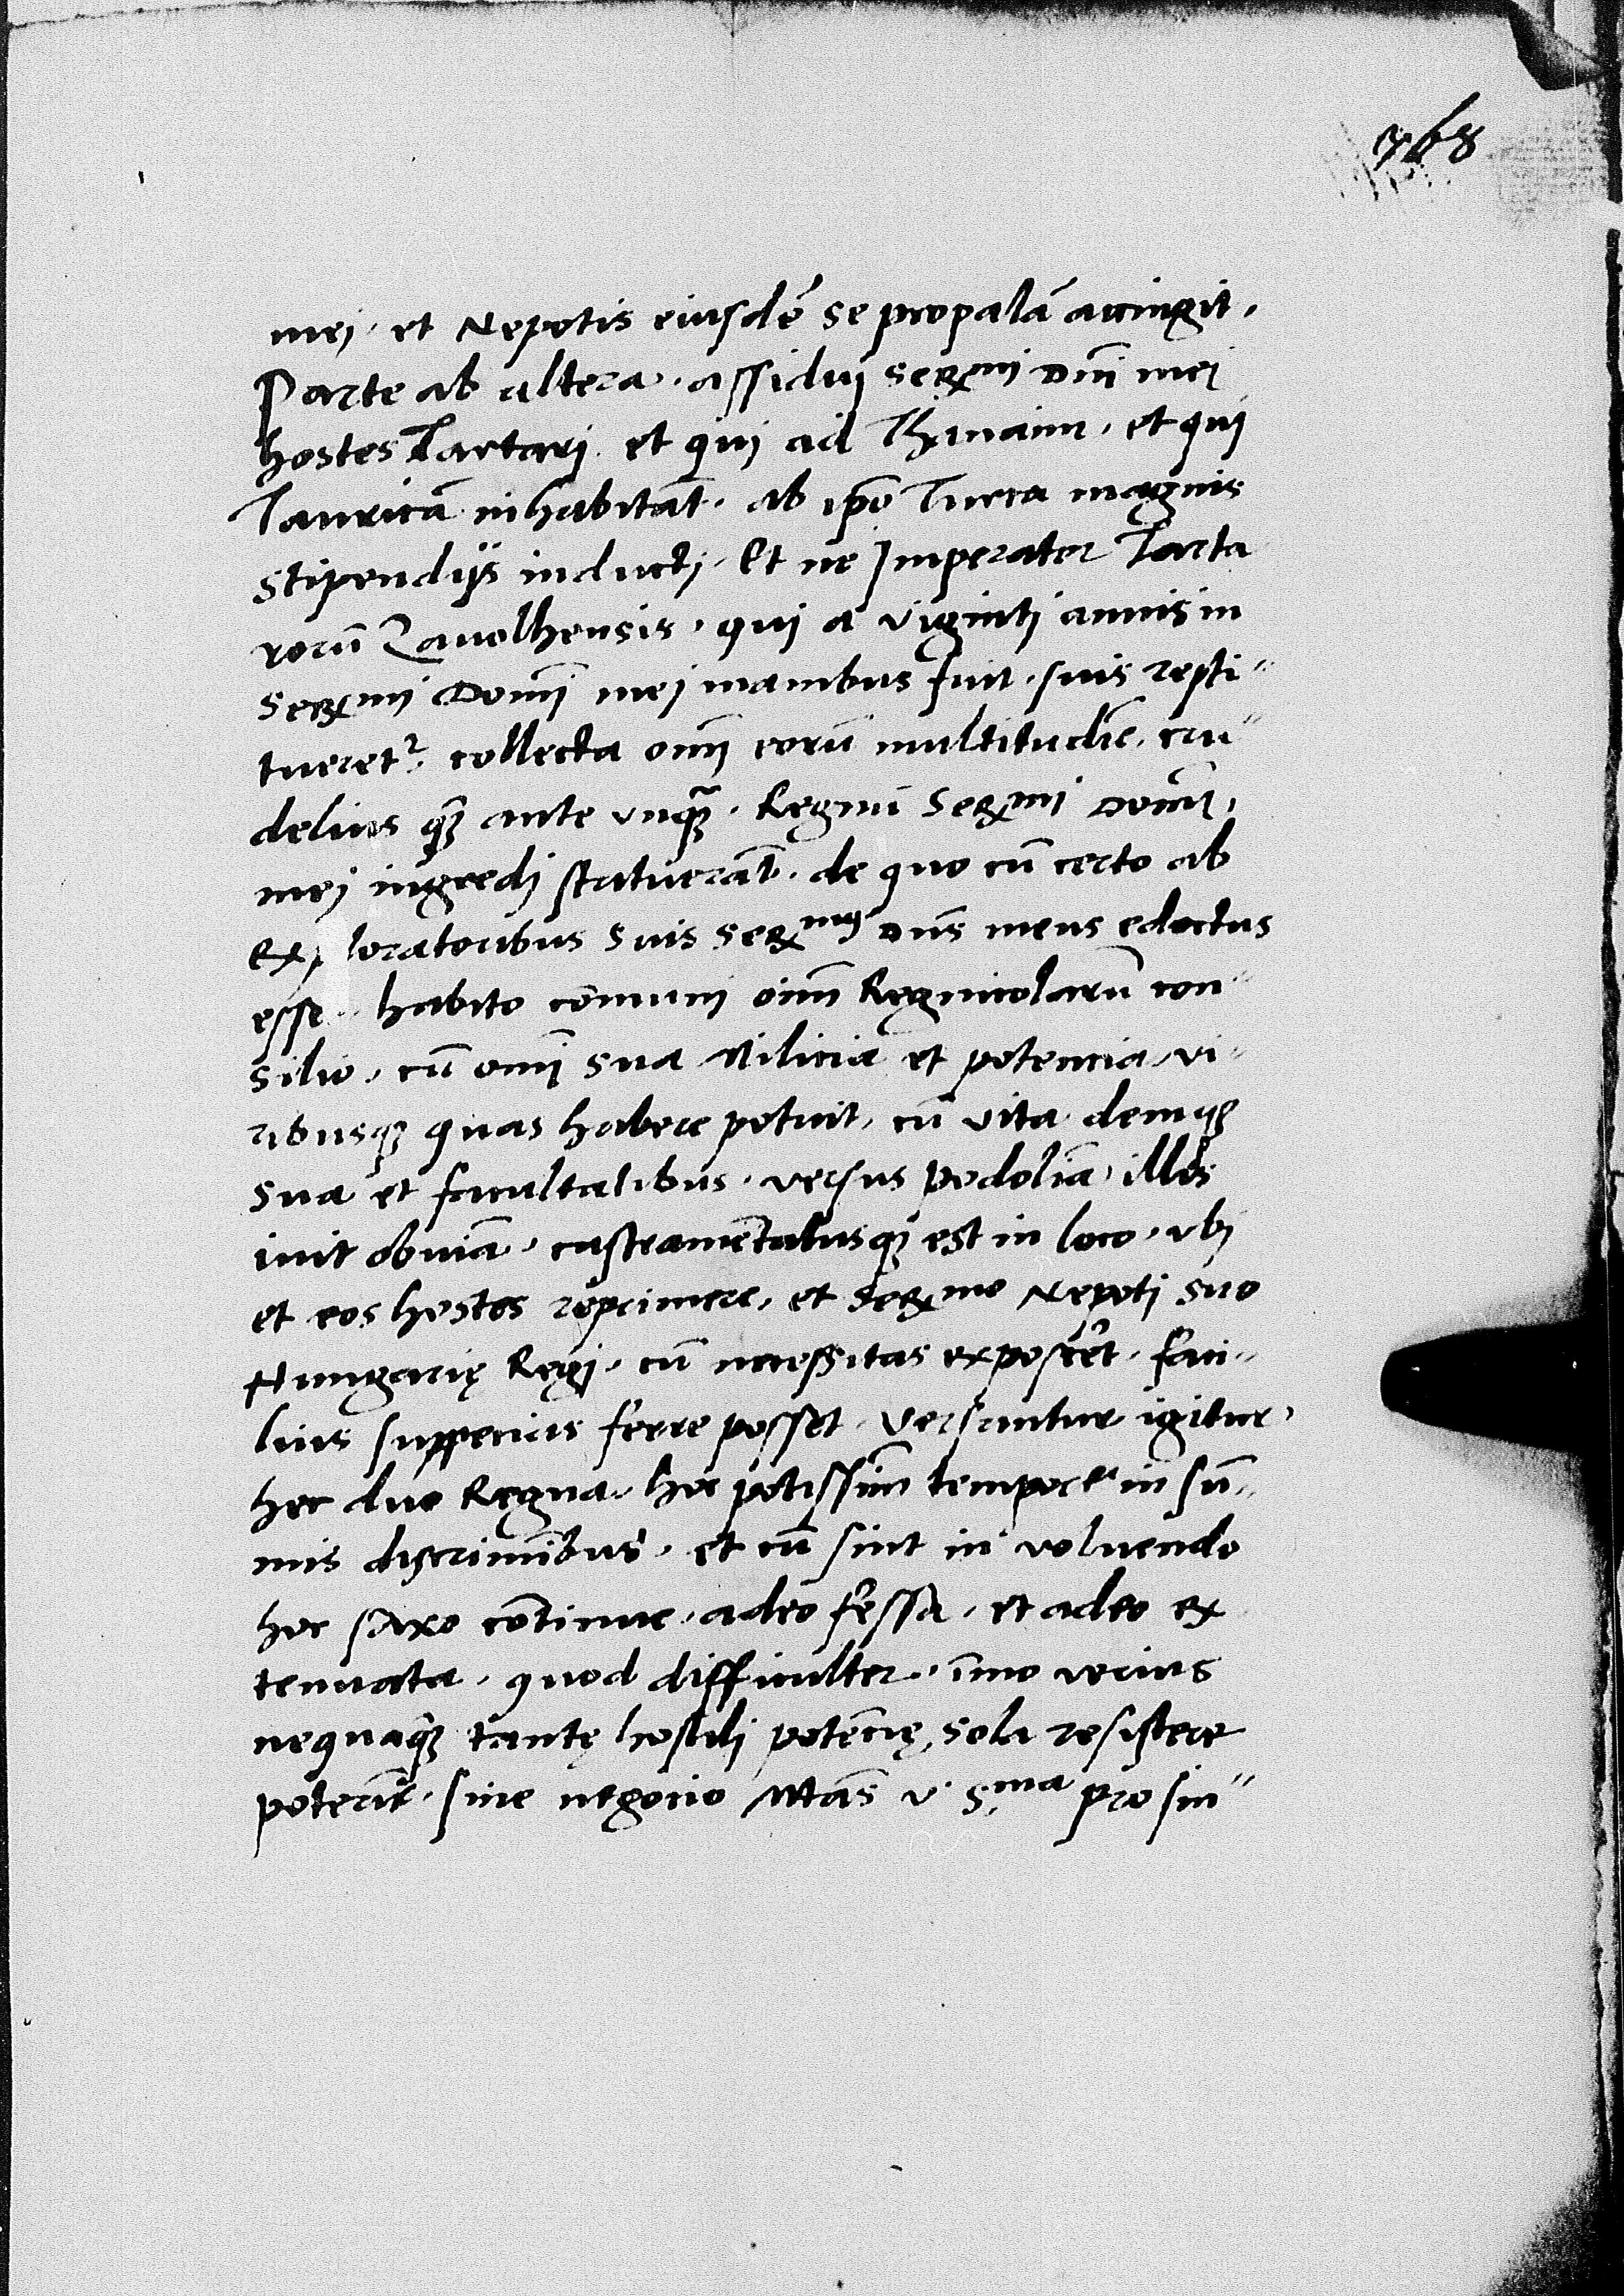 768
mej. et Nepotis eiusdē se propalā accingit.
Parte ab altera. assiduj Serxmj Dnī mei
hostes Tartarj. et quj ad Thanaim. et quj
Tauricā inhabitāt. ab ip̄o Turca magnis
stipendijs inductj. Et ne Imperator Tarta
rorū Zavolhensis. quj a viginti annis in
Serxmi Domī mej manibus fuit. suis resti"
tueret². collecta omī eorū multitudīe. cru"
delius qꝫ ante vnqꝫ̄. Regnū Serxmi Domī.
mej ingredj statuerāt. de quo cū certo ab
exploratoribus suis Serxmus Dn̄s meus edoctus
esse. habito cōmunj oīm Regnicolarū con"
silio. cū omī sua Milicia et potencia. vi"
ribusqꝫ quas habere potuit. cū vita demqꝫ
sua et facultatibus. versus podoliā. illis
iuit obuiā. castramētatusqꝫ est in loco. vbj
et eos hostes reprimere. et Serxmo Nepotj suo
Hungarię Regj. cū necessitas exposcēt. faci"
lius suppecias ferre posset. Versantur igitur
hec duo Regna. hoc potissim̄ tempore in sū"
mis discrimībus. et cū sint in voluendo
hoc saxo cōtinue. adeo fessa. et adeo ex
tenuata. quod difficulter. īmo verius
nequaqꝫ tantę hostilj potēcię, sola resistere
poterūt. sine negocio Mtās v. S.ma pro sin"